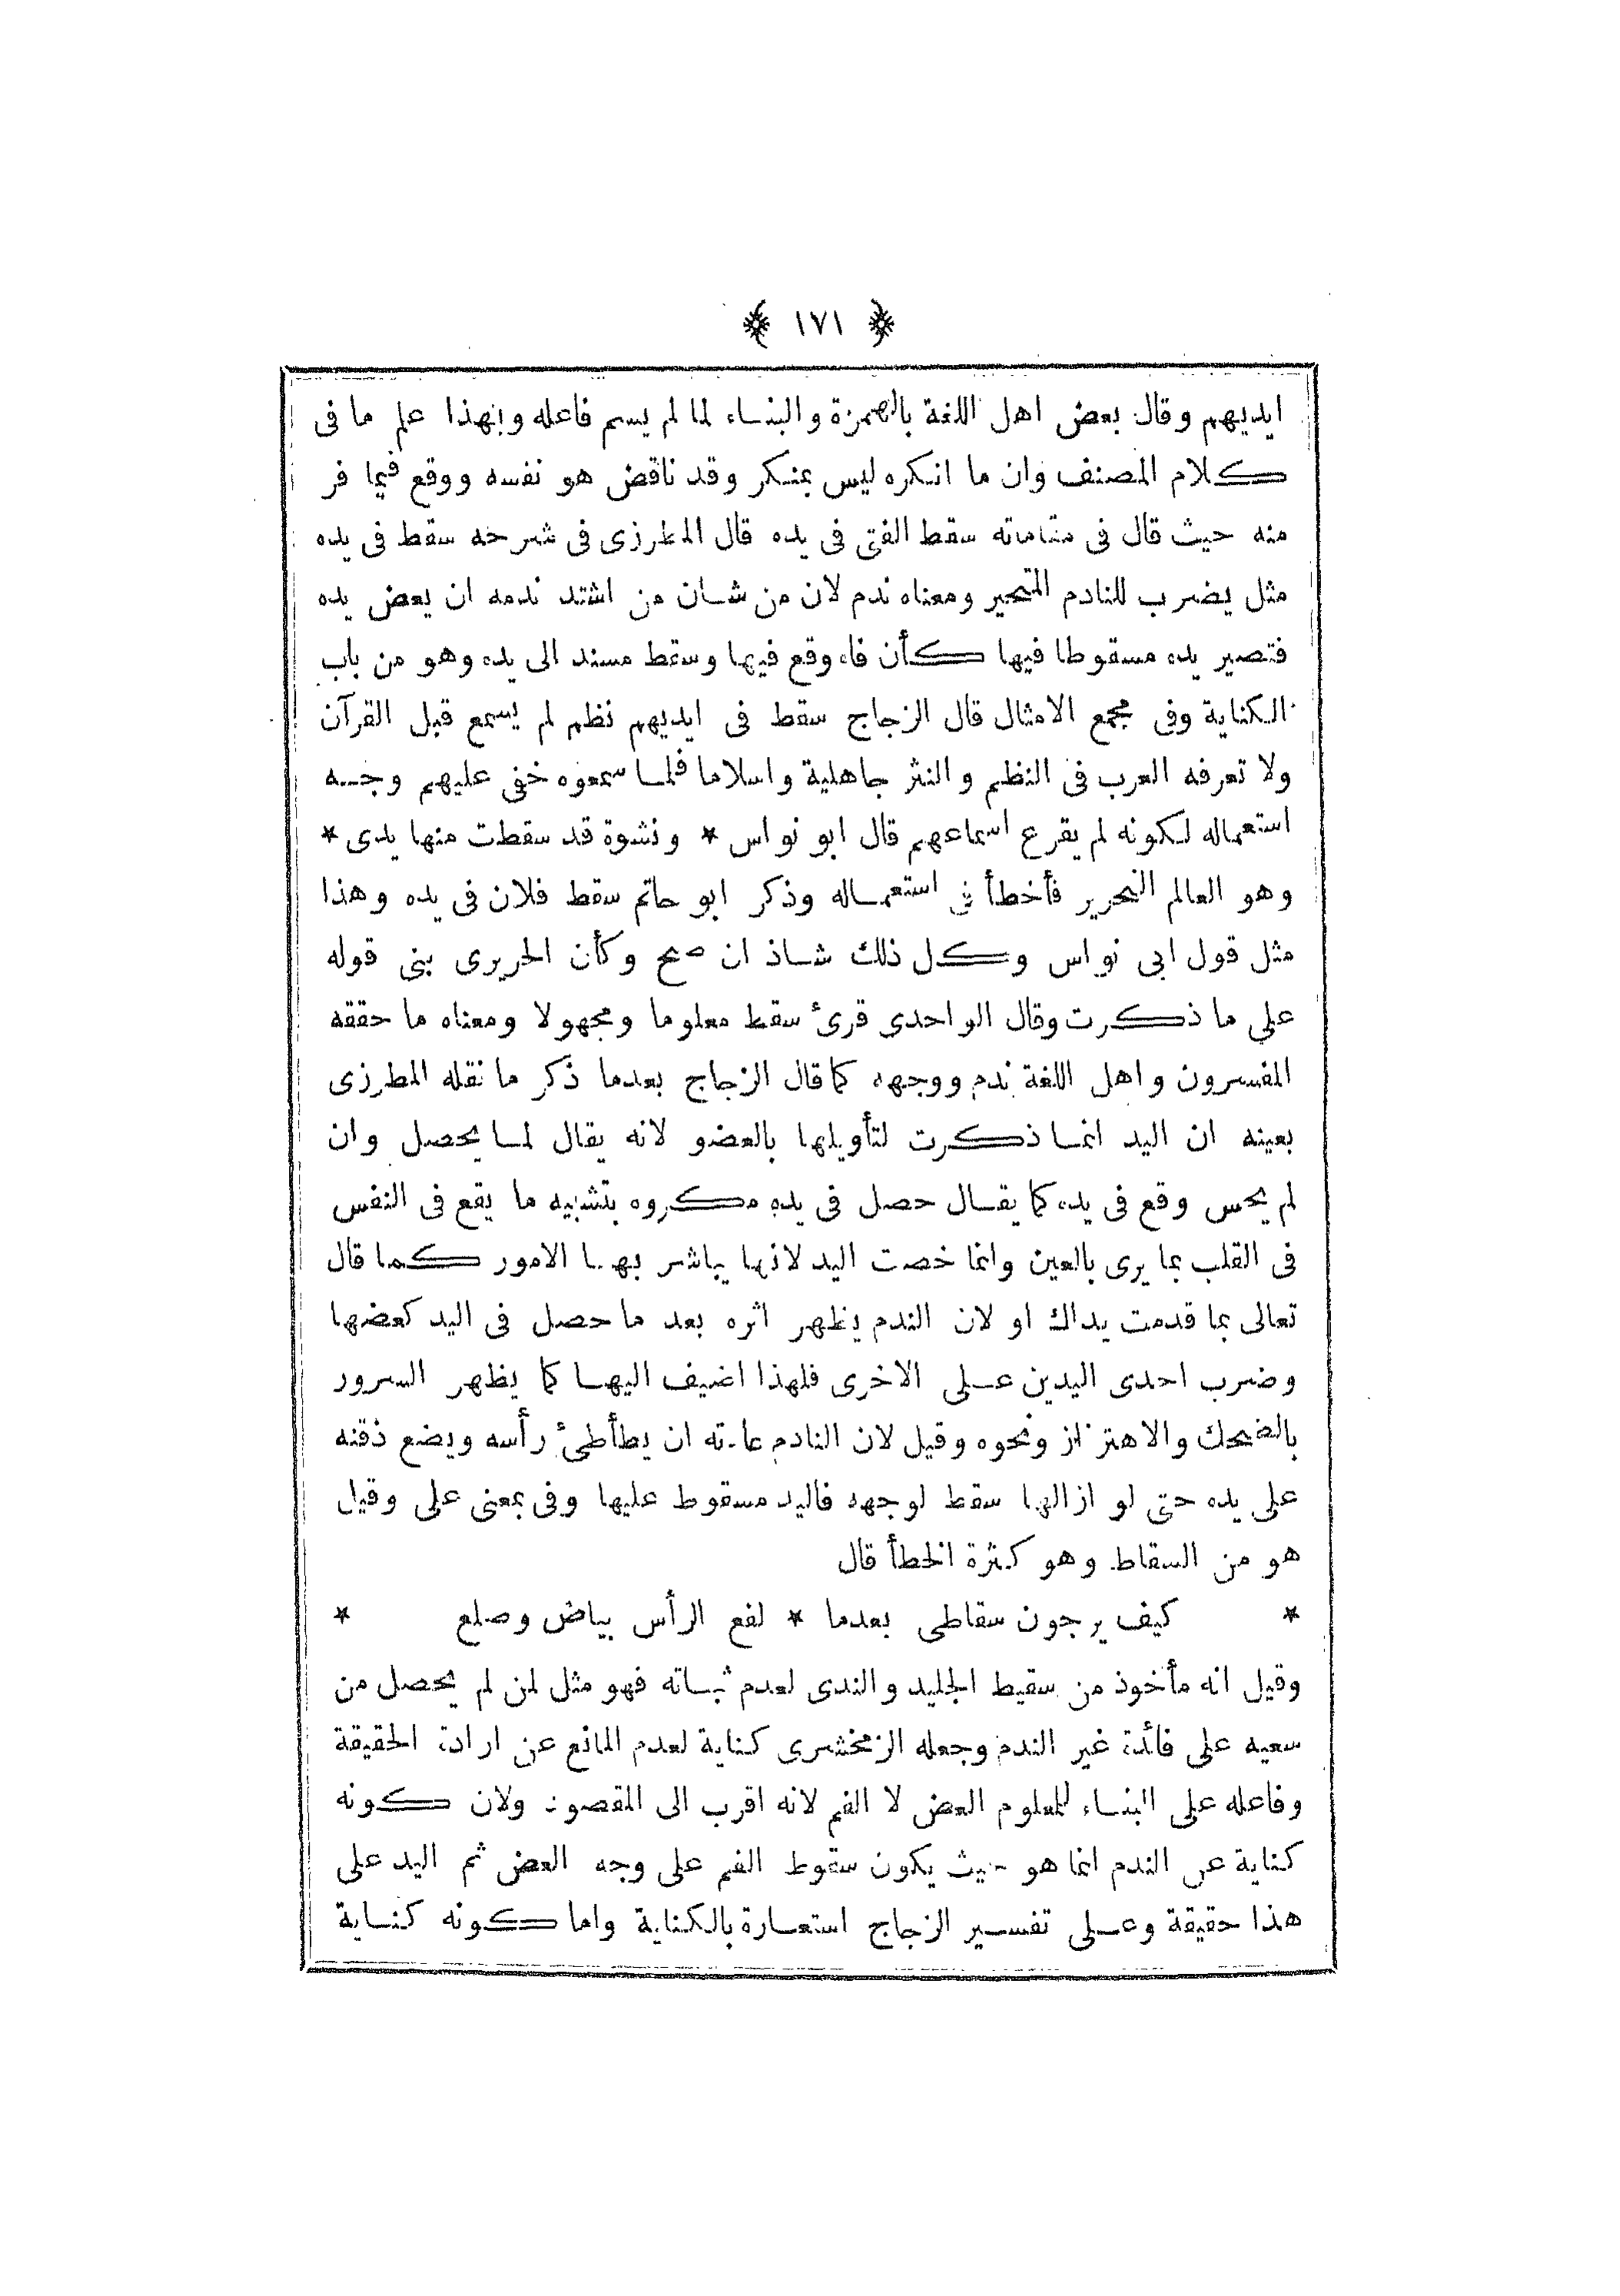 ١٧١
ايديهم وقال بعض اهل اللغة بالهمزة والبناء لما لم يسم فاعله وبهذا علم ما فى
كلام المصنف وان ما انكره ليس بمنكر وقد ناقض هو نفسه ووقع فيما فر
منه حيث قال فى مقاماته سقط الفتى فى يده قال المطرزى فى شرحه سقط فى يده
مثل يضرب للنادم المتحير ومعناه ندم لان من شان من اشتد ندمه ان يعض يده
فتصير يده مسقوطا فيها كأن فاه وقع فيها وسقط مسند الى يده وهو من باب
الكناية وفى مجمع الامثال قال الزجاج سقط فى ايديهم نظم لم يسمع قبل القرآن
ولا تعرفه العرب فى النظم والنثر جاهلية واسلاما فلما سمعوه خفى عليهم وجه
استعماله لكونه لم يقرع اسماعهم قال ابو نواس * ونشوة قد سقطت منها يدى *
وهو العالم النحرير فأخطأ فى استعماله وذكر ابو حاتم سقط فلان فى يده وهذا
مثل قول ابى نواس وكل ذلك شاذ ان صح وكأن الحريرى بنى قوله
على ما ذكرت وقال الواحدى قرئ سقط معلوما ومجهولا ومعناه ما حققه
المفسرون واهل اللغة ندم ووجهه كما قال الزجاج بعدما ذكر ما نقله المطرزى
بعينه ان اليد انما ذكرت لتأويلها بالعضو لانه يقال لما يحصل وان
لم يحس وقع فى يده كما يقال حصل فى يده مكروه بتشبيه ما يقع فى النفس
فى القلب بما يرى بالعين وانما خصت اليد لانها يباشر بها الامور كما قال
تعالى بما قدمت يداك او لان الندم يظهر اثره بعد ما حصل فى اليد كعضها
وضرب احدى اليدين على الاخرى فلهذا اضيف اليها كما يظهر السرور
بالضحك والاهتزاز ونحوه وقيل لان النادم عادته ان يطأطئ رأسه ويضع ذقنه
على يده حتى لو ازالها سقط لوجهه فاليد مسقوط عليها وفى بمعنى على وقيل
هو من السقاط وهو كثرة الخطأ قال
* كيف يرجون سقاطى بعدما * لفع الرأس بياض وصلع *
وقيل انه مأخوذ من سقيط الجليد والندى لعدم ثباته فهو مثل لمن لم يحصل من
سعيه على فائدة غير الندم وجعله الزمخشرى كناية لعدم المانع عن ارادة الحقيقة
وفاعله على البناء للمعلوم العض لا الفم لانه اقرب الى المقصود ولان كونه
كناية عن الندم انما هو حيث يكون سقوط الفم على وجه العض ثم اليد على
هذا حقيقة وعلى تفسير الزجاج استعارة بالكناية واما كونه كناية